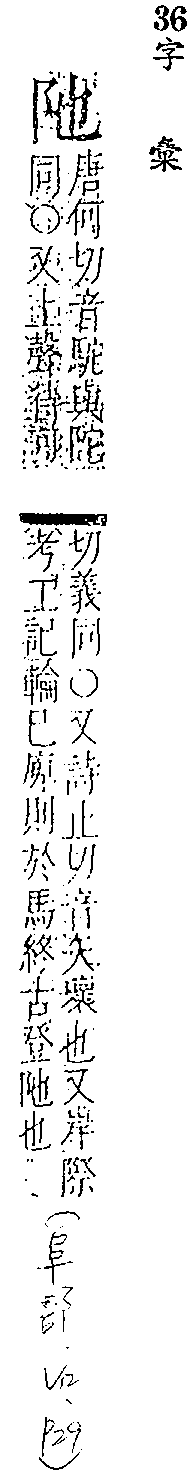 36 字彙
阤
唐何切音駝與陀
同○又上聲待可
切義同○又詩止切音矢壞也又岸際
考工記輪已庳則於馬終古登阤也
(阜部.戌.P29)